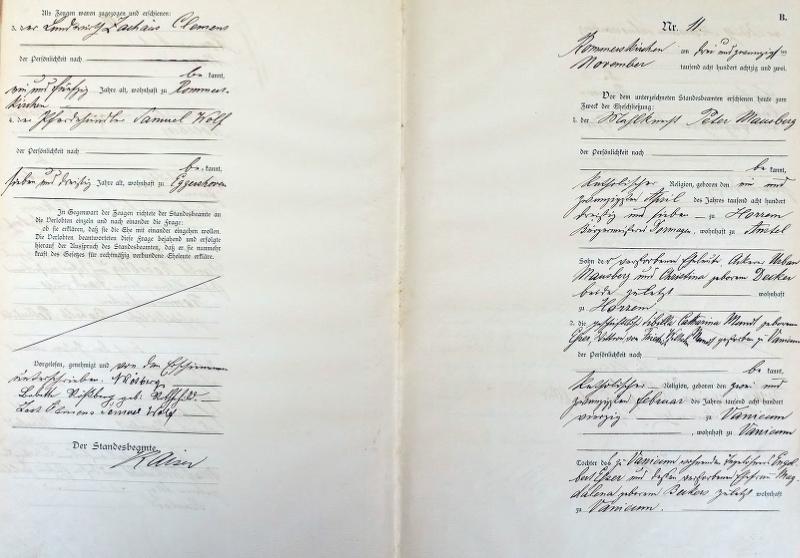 Als Zeugen waren zugezogen und erschienen:
3. der Landwirth Zachäus Clemens
der Persönlichkeit nach
be kannt,
drei und fünfzig Jahre alt, wohnhaft zu Rommers-
kirchen
4. der Pferdehändler Samuel Wolf
der Persönlichkeit nach
be kannt,
sieben und dreißig Jahre alt, wohnhaft zu Eggershoven
In Gegenwart der Zeugen richtete der Standesbeamte an
die Verlobten einzeln und nach einander die Frage:
ob sie erklären, daß sie die Ehe mit einander eingehen wollen.
Die Verlobten beantworteten diese Frage bejahend und erfolgte
hierauf der Ausspruch des Standesbeamten, daß er sie nunmehr
kraft des Gesetzes für rechtmäßig verbundene Eheleute erkläre.
Vorgelesen, genehmigt und von den Erschienenen
unterschrieben.
geb. Rothschild
Zach Clemens Samuel Wolf
Der Standesbeamte.
Kaiser
B.
Nr. 11.
Rommerskirchen am drei und zwanzigsten
November tausend acht hundert achtzig und zwei.
Vor dem unterzeichneten Standesbeamten erschienen heute zum
Zweck der Eheschließung:
1. der Mahlknecht Peter Mausberg
der Persönlichkeit nach
be kannt,
katholischer Religion, geboren den ein und
zwanzigsten April des Jahres tausend acht hundert
dreißig und sieben zu Horrem
Bürgermeisterei Dormagen, wohnhaft zu Anstel
Sohn der verstorbenen Eheleute Ackerer Urban
Mausberg und Christina geborene Decker
beide zuletzt wohnhaft
zu Horrem.
2. die geschäftslose Sibilla Catharina Mondt geborene
Esser, Wittwe von gestorben zu Vanicum
der Persönlichkeit nach
be kannt,
katholischer Religion, geboren den zwei und
zwanzigsten Februar des Jahres tausend acht hundert
vierzig zu Vanicum
, wohnhaft zu Vanicum
Tochter des zu Vanicum wohnenden Tagelöhners Engel-
bert Esser und dessen verstorbenen Ehefrau Mag-
dalena geborene Beckers zuletzt wohnhaft
zu Vanicum.